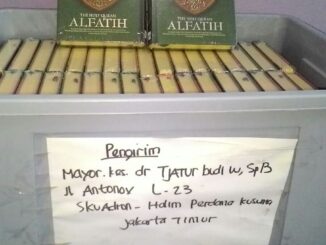 THE HOLY QURAN
ALFATIH
THE HOLY QURAN
ALFATIH
Pengirim
Mayor. kes. dr TJATUR budi W, SpB
Jl Antonov L-23
Skuadron - Halim Perdana Kusuma
Jakarta Timur